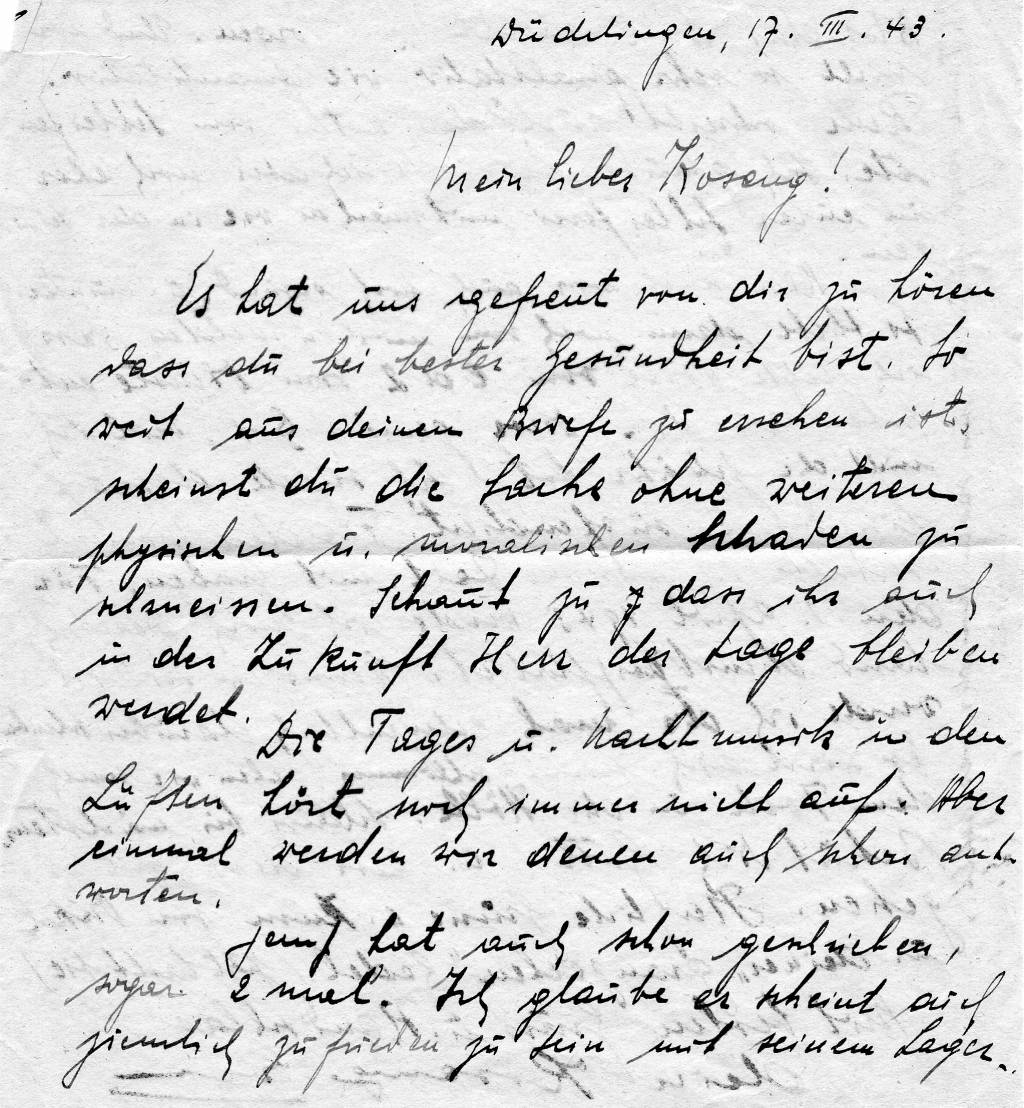 Düdelingen, 17. III. 43.
Mein lieber Koseng!
Es hat uns gefreut von dir zu hören
dass du bei bester Gesundheit bist. So
weit aus deinem Briefe zu ersehen ist,
scheinst du die Sache ohne weiteren
physischen u. moralischen Schaden zu
schmeissen. Schaut zu dass ihr auch
in der Zukunft Herr der Lage bleiben
werdet.
Die Tages u. Nachtmusik in den
Lüften hört noch immer nicht auf. Aber
einmal werden wir denen auch schon ant-
worten.
Jemp hat auch schon geschrieben,
sogar 2 mal. Ich glaube er scheint auch
ziemlich zufrieden zu sein mit seinem Lager.